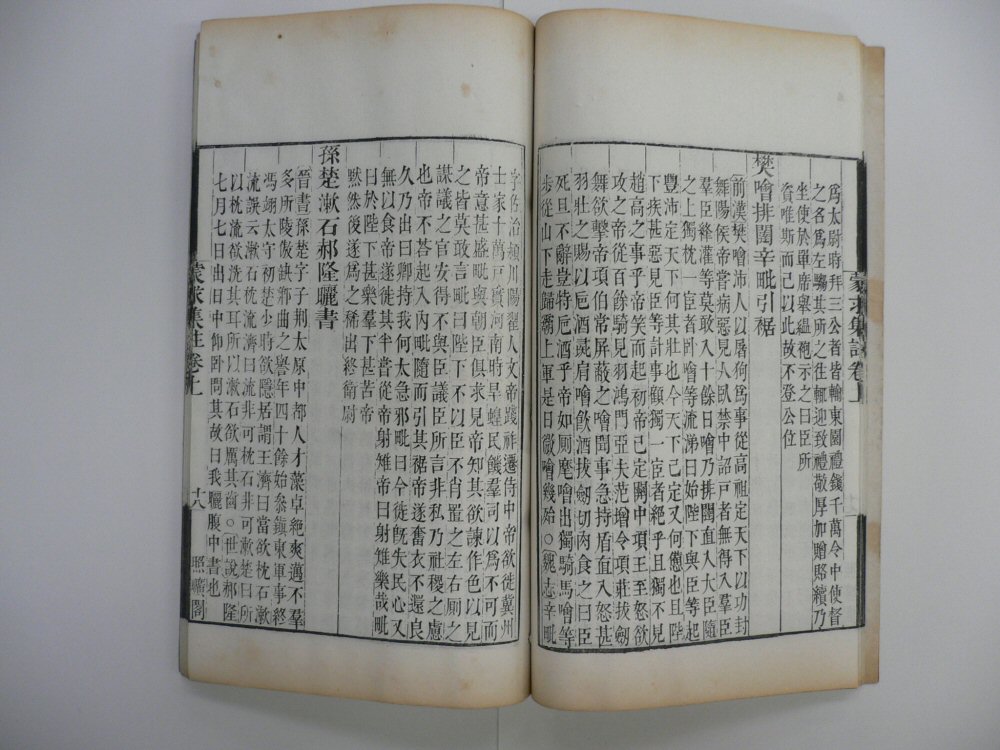 爲太尉時拜三公者皆輸東園禮錢千萬令中使督
之名爲左騶其所之往輒迎致禮敬厚加贈賂續乃
坐使於單席舉縕袍示之曰臣所
資唯斯而已以此故不登公位
樊噲排闥辛毗引裾
前漢樊噲沛人以屠狗爲事從高祖定天下以功封
舞陽侯帝嘗病惡見人臥禁中詔戸者無得入羣臣
羣臣絳灌等莫敢入十餘日噲乃排闥直入大臣隨
之上獨枕一宦者臥噲等流涕曰始陛下與臣等起
豐沛定天下何其壯也今天下已定又何憊也且陛
下疾甚惡見臣等計事顧獨一宦者絶乎且獨不見
趙高之事乎帝笑而起初帝已定關中項王至怒欲
攻之帝從百餘騎見羽鴻門亞父范增令項莊拔劒
舞欲擊帝項伯常屏蔽之噲聞事急持盾直入怒甚
羽壯之賜以卮酒彘肩噲飮酒拔劒切肉食之曰臣
死且不辭豈特卮酒乎帝如厠麾噲出獨騎馬噲等
步從山下走歸霸上軍是日微噲幾殆○魏志辛毗
蒙求集註卷上
字佐治潁川陽翟人文帝踐祚遷侍中帝欲徙冀州
士家十萬戸實河南時旱蝗民饑羣司以爲不可而
帝意甚盛毗與朝臣俱求見帝知其欲諫作色以見
之皆莫敢言毗曰陛下不以臣不肖置之左右厠之
謀議之官安得不與臣議臣所言非私乃社稷之慮
也帝不荅起入内毗隨而引其裾帝遂奮衣不還良
久乃出曰卿持我何太急邪毗曰今徙旣失民心又
無以食帝遂徙其半嘗從帝射雉帝曰射雉樂哉毗
曰於陛下甚樂羣下甚苦帝
黙然後遂爲之稀出終衛尉
孫楚漱石郝隆曬書
晉書孫楚字子荆太原中都人才藻卓絶爽邁不羣
多所陵傲缺鄕曲之譽年四十餘始參鎭東軍事終
馮翊太守初楚少時欲隱居謂王濟曰當欲枕石漱
流誤云漱石枕流濟曰流非可枕石非可漱楚曰所
以枕流欲洗其耳所以漱石欲厲其齒○世說郝隆
七月七日出日中仰卧問其故曰我曬腹中書也
蒙求集註卷上
十八
照曠閣